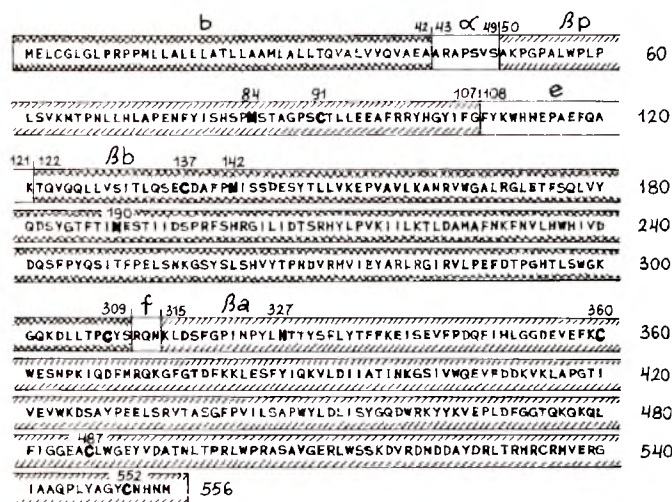 b 42 43 α 49 50 βp
MELCGLGLPRPPMLLALLLATLLAAMLALLTQVALVVQVAEAARAPSVSAKPGPALWPLP 60
84 91 107 108 e
LSVKMTPNLLHLAPENFYISHSPNSTAGPSCTLLEEAFRRYHGYIFGFYKWHHEPAEFQA 120
121 122 βb 137 142
KTQVQQLLVSITLQSECDAFPNISSDESYTLLVKEPVAVLKANRVWGALRGLETFSQLVY 180
190
QDSYGTFTINESTIIDSPRFSHRGILIDTSRHYLPVKIILKTLDAMAFNKFNVLHWHIVD 240
DQSFPYQSITFPELSNKGSYSLSHVYTPNDVRMVIEYARLRGIRVLPEFDTPGHTLSWGK 300
309 f 315 βa 327 360
GQKDLLTPCYSRQNKLDSFGPINPYLNTTYSFLYTFFKEISEVFPDQFIHLGGDEVEFKC 360
WESNPKIQDFMRQKGFGTDFKKLESFYIQKVLDIIATINKGSIVWQEVFDDKVKLAPGTI 420
VEVWKDSAYPEELSRVTASGFPVILSAPWYLDLISYGQDWRKYYKVEPLDFGGTQKQKQL 480
487
FIGGEACLWGEYVDATNLTPRLWPRASAVGERLWSSKDVRDMDDAYDRLTRHRCRMVERG 540
552
IAAQPLYAGYCNHNM 556